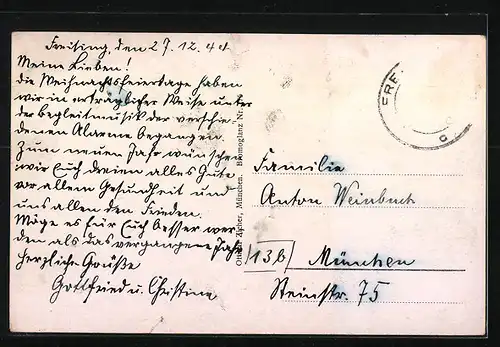 Freising, den 27.12.44
Meine Lieben!
die Weihnachtsfeiertage haben
wir in erträglicher Weise unter
der Begleitmusik der verschie-
denen Alarme begangen.
Zum neuen Jahr wünschen
wir Euch dreien alles Gute
vor allem Gesundheit und
uns allen den Frieden.
Möge es für Euch besser wer
den als das vergangene Jahr
Herzliche Grüße
Gottfried u. Christine
Zacher, München. Bromoglanz Nr
FRE
Familie
Anton Weinbuch
13b) München
Steinstr. 75